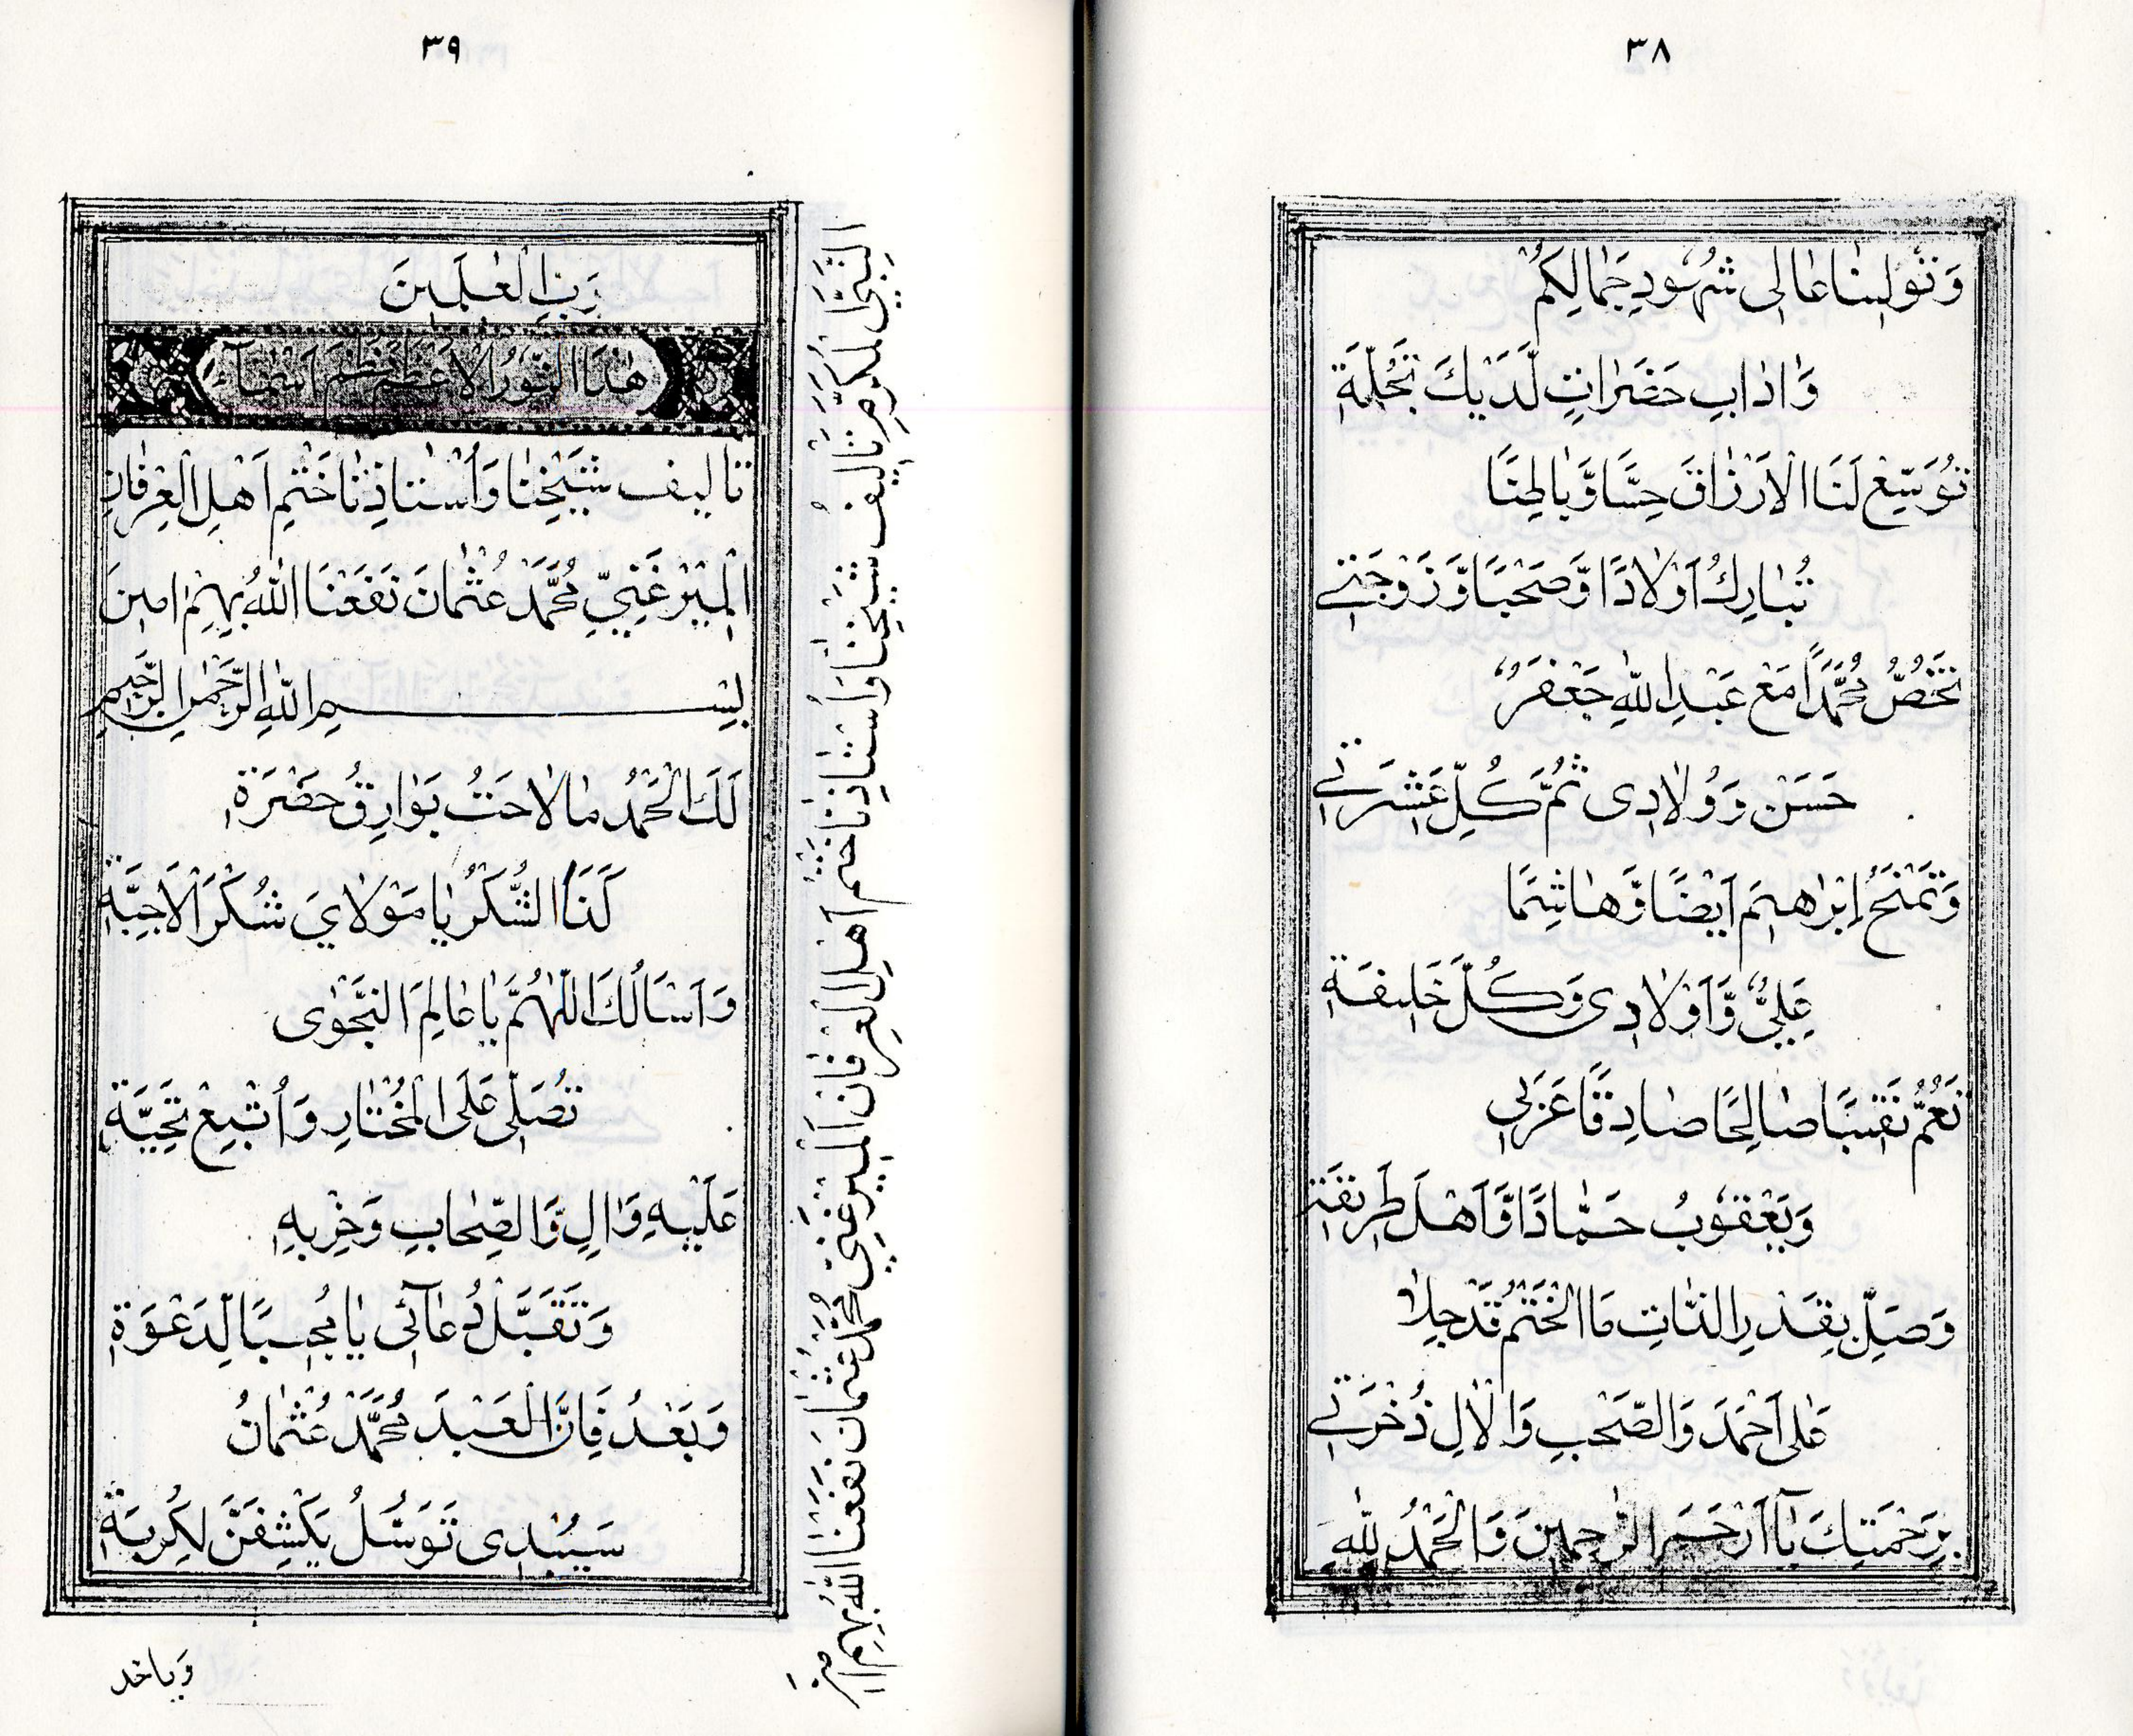 ٣٨
وَتُولِينَا عَالِى شُهُودِ جَمَالِكُمْ
وَاٰدَابِ حَضَرَاتٍ لَّدَيْكَ تَجُلَّةِ
تُوَسِّعْ لَنَا الْاَرْزَاقَ حِسًّا وَّبَاطِنًا
تُبَارِكُ اَوْلَادًا وَّصَحْبًا وَّزَوْجَتِے
تَخُصُّ مُحَمَّدًا مَعْ عَبْدِ اللّٰهِ جَعْفَرٌ
حَسَنْ وَوُلَادِى ثُمَّ كُلِّ عَشِيرَتِے
وَتَمْنَحُ اِبْرَاهِيمَ اَيْضًا وَّهَاشِمًا
عَلِيٌّ وَّاَوْلَادِى وَكُلَّ خَلِيفَةِ
تَعُمُّ نَقِيبًا صَالِحًا صَادِقًا عَرَبِى
وَيَعْقُوبُ حَمَّادًا وَّاَهْلَ طَرِيقَتِے
وَصَلِّ بِقَدْرِ الذَّاتِ مَا الْخَتْمُ قَدْ جَلَا
عَلٰى اَحْمَدَ وَالصَّحْبِ وَالْاٰلِ ذُخْرَتِے
بِرَحْمَتِكَ يَآ اَرْحَمَ الرَّاحِمِينَ وَالْحَمْدُ لِلّٰهِ
٣٩
رَبِّ الْعٰلَمِينَ
هٰذَا النُّورُ الْاَعْظَمُ نَظْمُ اَسْمَآءِ
تَالِيفُ شَيْخِنَا وَاُسْتَاذِنَا خَتْمِ اَهْلِ الْعِرْفَانِ
الْمِيْرْغَنِيِّ مُحَمَّدْ عُثْمَانَ نَفَعَنَا اللّٰهُ بِهِمْ اٰمِينَ
بِسْمِ اللّٰهِ الرَّحْمٰنِ الرَّحِيمِ
لَكَ الْحَمْدُ مَا لَاحَتْ بَوَارِقُ حَضْرَةِ
لَنَا الشُّكْرُ يَا مَوْلَايَ شُكْرَ الْاَحِبَّةِ
وَاَسْاَلُكَ اللّٰهُمَّ يَا عَالِمَ النَّجْوٰى
تُصَلِّى عَلَى الْمُخْتَارِ وَاُتْبِعْ تَحِيَّةِ
عَلَيْهِ وَاٰلٍ وَّالصِّحَابِ وَحِزْبِهِ
وَتَقَبَّلْ دُعَآئِى يَا مُجِيبًا لِدَعْوَةِ
وَبَعْدُ فَاِنَّ الْعَبْدَ مُحَمَّدْ عُثْمَانُ
سَيُبْدِى تَوَسُّلُ يَكْشِفَنَّ لِكُرْبَةِ
وَيَاخد
النَّبِيِّ الْمُكَرَّمِ تَالِيفُ شَيْخِنَا وَاُسْتَاذِنَا خَتْمِ اَهْلِ الْعِرْفَانِ الْمِيْرْغَنِيِّ مُحَمَّدْ عُثْمَانَ نَفَعَنَا اللّٰهُ بِهِمْ اٰمِينَ